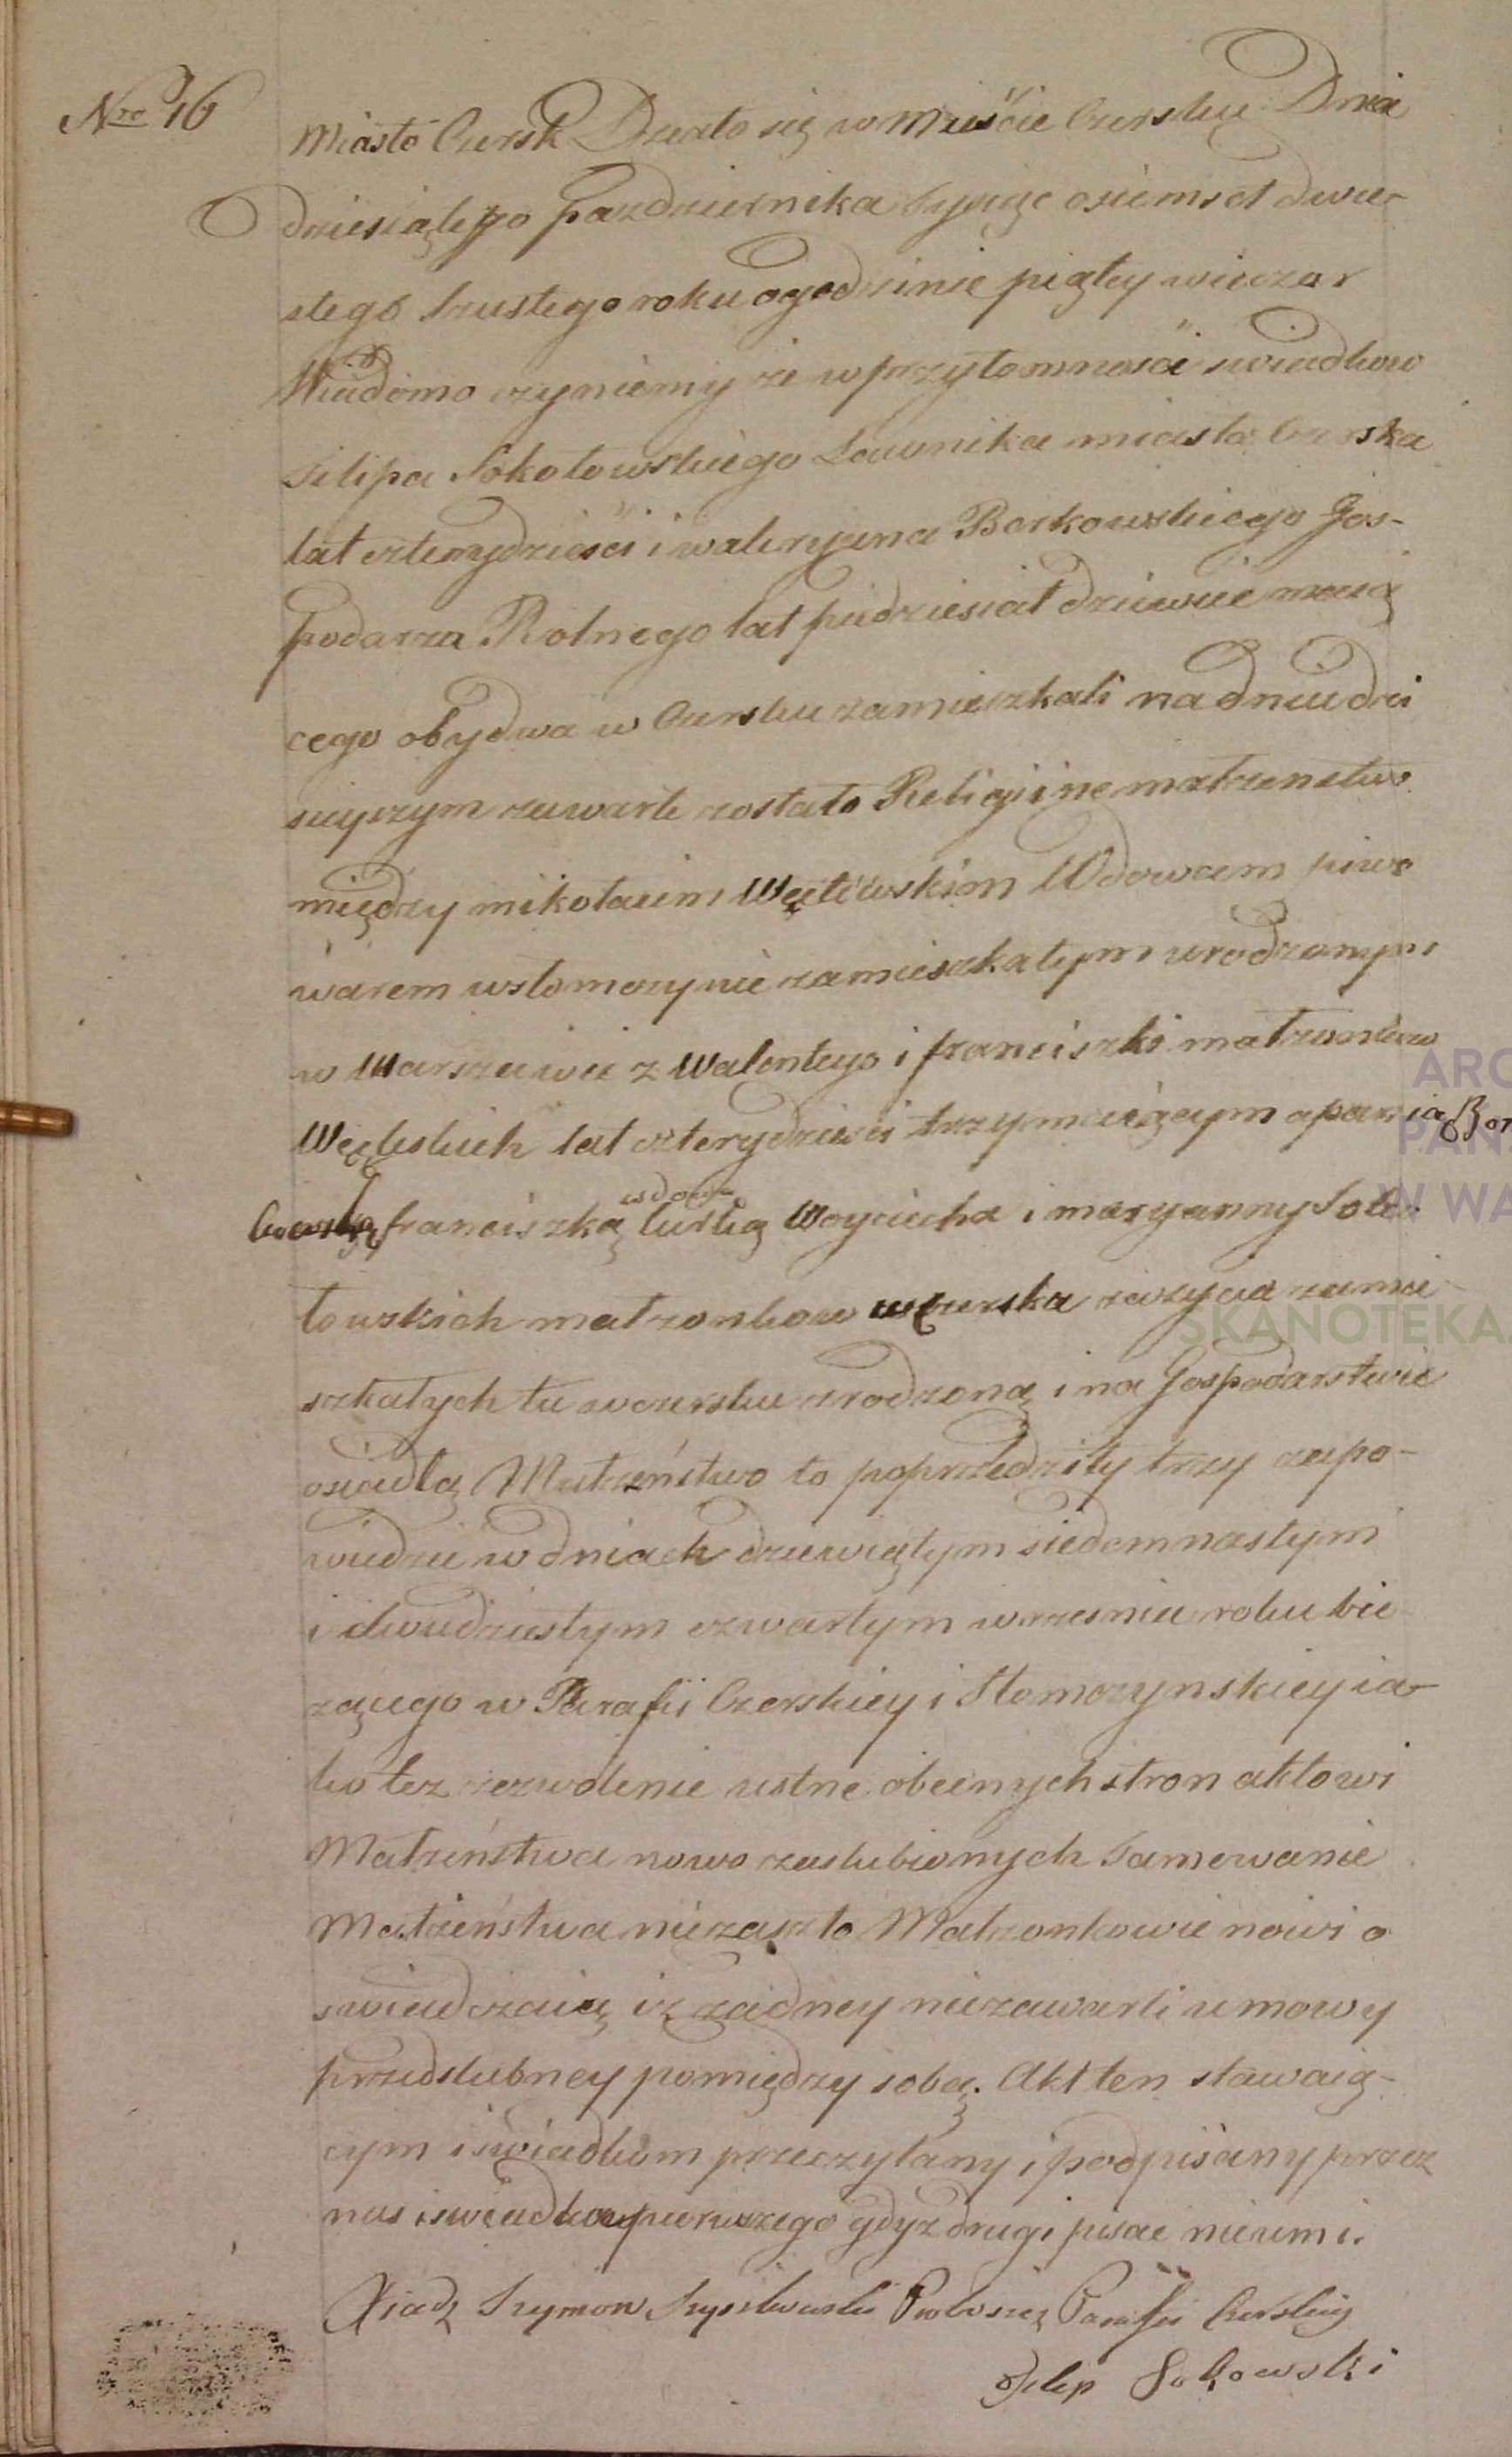 Nro 16
Miasto Czersk Działo się w Mieście Czersku Dnia
dziesiątego Pazdziernika tysiąc osiemset dwu-
stego szustego roku o godzinie piątey wieczor
Wiadomo czyniemy ze w przytomności swiadkow
Filipa Sokołowskiego Ławnika miasta Czerska
lat czterydzieści i waleryana Borkowskiego Gos-
podarza Rolnego lat piedziesiat dziewie maią
cego obydwa w Czersku zamieszkali na dniu dzi
sieyszym zawarte zostało Religiine małzenstwo
między mikołaiem Węcłowskim Wdowcem piwo
warem w słomczynie zamieszkałym urodzonym
w Warszawie z Walentego i franciszki małzonkow
Węcłskich lat czterydzieści trzy maiącym a panią Bor
kowską franciszką wdową curką Woyciecha i maryanny Soko
łowskich małzonkow w czerska zezycia zamie
szkałych tu w czersku zrodzoną i na Gospodarstwie
osiadłą Małzeństwo to poprzedziły trzy zapo-
wiedzie w dniach dziewiątym siedemnastym
i dwudziestym czwartym wrzesnia roku bie
zącego w Parafii Czerskiey i Słomczynskiey ia-
ko tez zezwolenie ustne obecnych stron aktowi
Małzeństwa nowo zaslubionych Tamowanie
Małzeństwa niezaszło Małzonkowie nowi o
swiadczaią iz zadney niezawarli umowy
przedslubney pomiędzy sobą. Akt ten stawaią-
cym i swiadkom przeczytany i podpisany przez
nas i swiadka pierwszego gdyz drugi pisac nieumi.
Xiądz Szymon Proboszcz Parafii Czerskiey
Filip Sokołowski
ARC
PAN
W WA
SKANOTEKA.